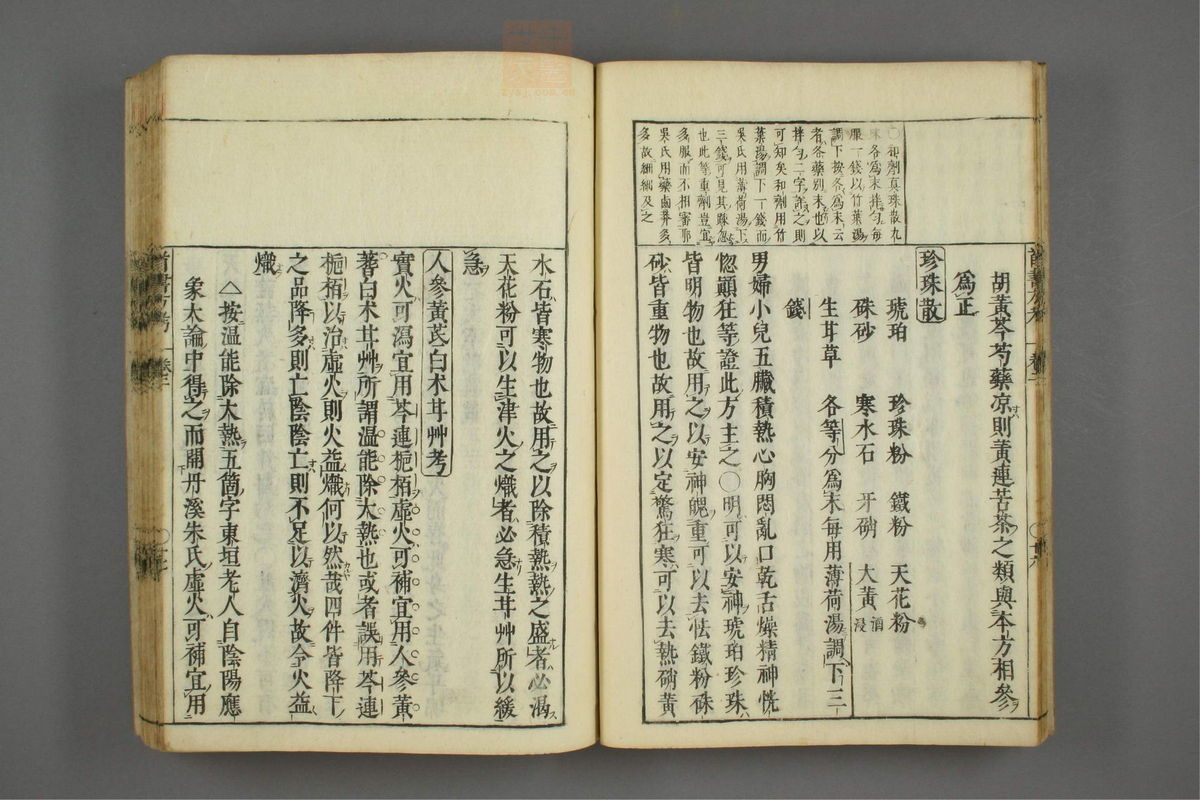 胡黃芩芍藥凉則黃連苦茶之類與本方相參
爲正
珍珠散
琥珀 珍珠粉 鐵粉 天花粉
硃砂 寒水石 牙硝 大黃酒浸
生甘草 各等分爲末每用薄荷湯調下三
錢
男婦小兒五臟積熱心胸悶亂口乾舌燥精神恍
惚顚狂等證此方主之○明可以安神琥珀珍珠
皆明物也故用之以安神魄重可以去怯鐵粉硃
砂皆重物也故用之以定驚狂寒可以去熱硝黃
○和劑真珠散九
味各爲末拌勻每
服一錢以竹葉湯
調下按各爲末云
者各藥別末也以
拌勻二字
可知矣和劑用竹
葉湯調下一錢而
吳氏用薄荷湯下
三錢可見其踈忽
也此等重劑豈宜
多服而不相審耶
吳氏用藥鹵莽多
多故細細及之
水石皆寒物也故用之以除積熱熱之盛者必渴
天花粉可以生津火之熾者必急生甘艸所以緩
急
人參黃芪白朮甘艸考
實火可瀉宜用芩連梔栢虛火可補宜用人參黃
蓍白朮甘艸所謂溫能除大熱也或者誤用芩連
梔栢以治虛火則火益熾何以然哉四件皆降下
之品降多則亡陰陰亡則不足以濟火故令火益
熾
△按溫能除大熱五箇字東垣老人自陰陽應
象大論中得之而開丹溪朱氏虛火可補宜用